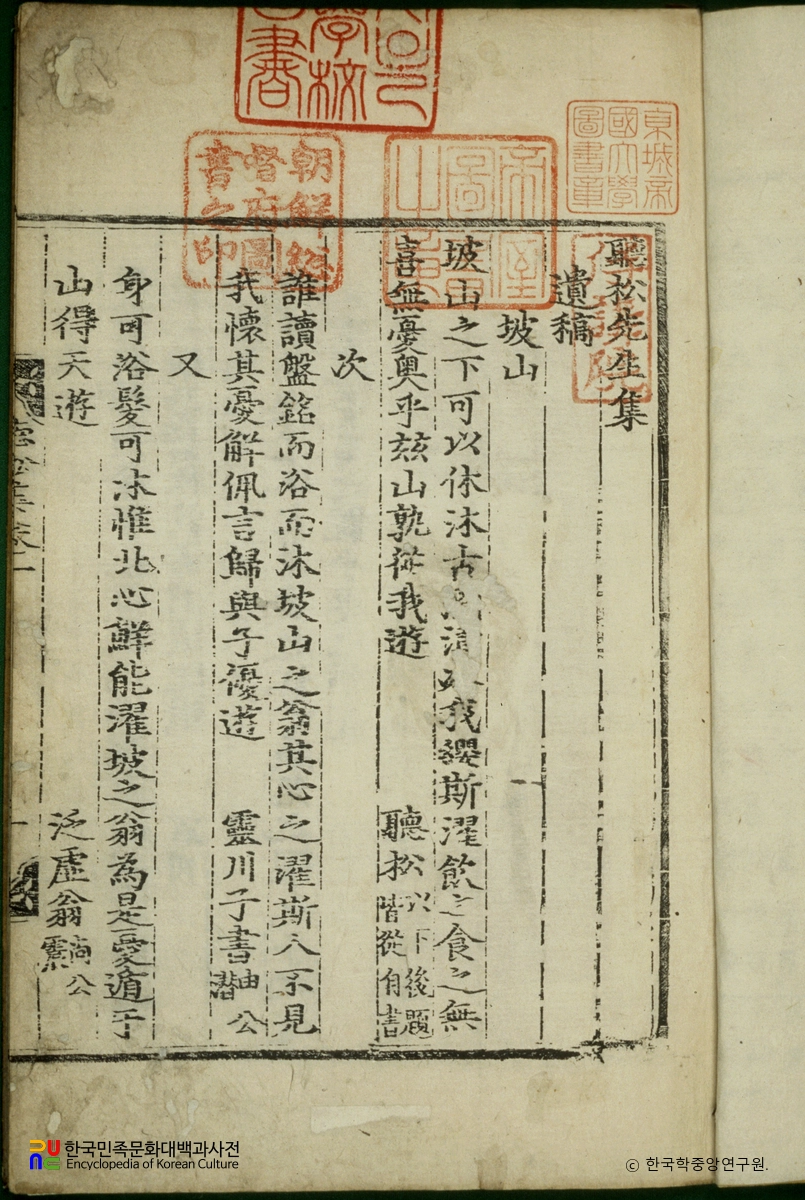 京城帝國大學圖書章
帝室圖書之章
朝鮮總督府圖書之印
聽松先生集
遺稿
坡山
坡山之下可以休沐古清我纓斯濯飮之食之無
喜無憂奧乎玆山孰從我遊 聽松 以下後題皆從自書
次
誰讀盤銘而浴而沐坡山之翁其心之濯斯人不見
我懷其憂解佩言歸與子優遊 靈川子書 申公潛
又
身可浴髮可沐惟此心鮮能濯坡之翁為是憂遁于
山得天遊 泛虛翁 尙公震
한국민족문화대백과사전
Encyclopedia of Korean Culture
ⓒ 한국학중앙연구원.